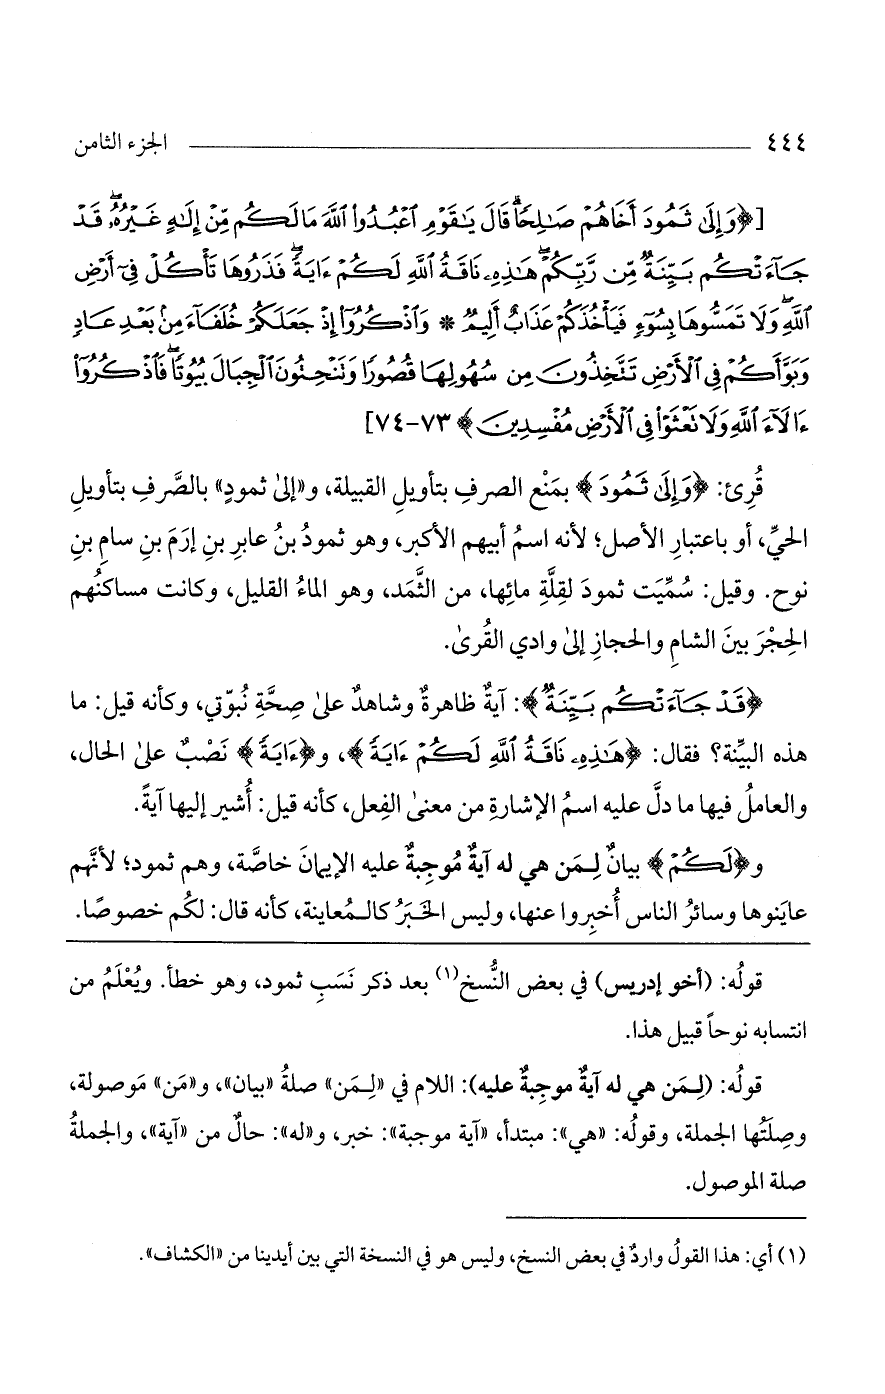 ٤٤٤ الجزء الثامن
[﴿وَإِلَىٰ ثَمُودَ أَخَاهُمْ صَـٰلِحًاۗ قَالَ يَـٰقَوْمِ ٱعْبُدُوا۟ ٱللَّهَ مَا لَكُم مِّنْ إِلَـٰهٍ غَيْرُهُۥۖ قَدْ
جَآءَتْكُم بَيِّنَةٌ مِّن رَّبِّكُمْۖ هَـٰذِهِۦ نَاقَةُ ٱللَّهِ لَكُمْ ءَايَةًۖ فَذَرُوهَا تَأْكُلْ فِىٓ أَرْضِ
ٱللَّهِۖ وَلَا تَمَسُّوهَا بِسُوٓءٍ فَيَأْخُذَكُمْ عَذَابٌ أَلِيمٌ * وَٱذْكُرُوٓا۟ إِذْ جَعَلَكُمْ خُلَفَآءَ مِنۢ بَعْدِ عَادٍ
وَبَوَّأَكُمْ فِى ٱلْأَرْضِ تَتَّخِذُونَ مِن سُهُولِهَا قُصُورًا وَتَنْحِتُونَ ٱلْجِبَالَ بُيُوتًاۖ فَٱذْكُرُوٓا۟
ءَالَآءَ ٱللَّهِ وَلَا تَعْثَوْا۟ فِى ٱلْأَرْضِ مُفْسِدِينَ﴾ ٧٣-٧٤]
قُرِئ: ﴿وَإِلَىٰ ثَمُودَ﴾ بمَنْع الصرفِ بتأويلِ القبيلة، و«إلىٰ ثمودٍ» بالصَّرفِ بتأويلِ
الحيِّ، أو باعتبارِ الأصل؛ لأنه اسمُ أبيهم الأكبر، وهو ثمودُ بنُ عابرِ بنِ إرَمَ بنِ سامِ بنِ
نوح. وقيل: سُمِّيَت ثمودَ لقِلَّةِ مائِها، من الثَّمَد، وهو الماءُ القليل، وكانت مساكنُهم
الحِجْرَ بينَ الشامِ والحجازِ إلىٰ وادي القُرىٰ.
﴿قَدْ جَآءَتْكُم بَيِّنَةٌ﴾: آيةٌ ظاهرةٌ وشاهدٌ علىٰ صِحَّةِ نُبوّتي، وكأنه قيل: ما
هذه البيِّنة؟ فقال: ﴿هَـٰذِهِۦ نَاقَةُ ٱللَّهِ لَكُمْ ءَايَةً﴾، و﴿ءَايَةً﴾ نَصْبٌ علىٰ الحال،
والعاملُ فيها ما دلَّ عليه اسمُ الإشارةِ من معنىٰ الفِعل، كأنه قيل: أُشير إليها آيةً.
و﴿لَكُمْ﴾ بيانٌ لِـمَن هي له آيةٌ مُوجِبةٌ عليه الإيمانَ خاصَّة، وهم ثمود؛ لأنَّهم
عايَنوها وسائرُ الناس أُخبِروا عنها، وليس الخَبَرُ كالـمُعاينة، كأنه قال: لكُم خصوصًا.
قولُه: (أخو إدريس) في بعض النُّسخ(١) بعد ذكر نَسَبِ ثمود، وهو خطأ. ويُعْلَمُ من
انتسابه نوحاً قبيل هذا.
قولُه: (لِـمَن هي له آيةٌ موجِبةٌ عليه): اللام في «لِـمَن» صلةُ «بيان»، و«مَن» مَوصولة،
وصِلَتُها الجملة، وقولُه: «هي»: مبتدأ، «آية موجبة»: خبر، و«له»: حالٌ من «آية»، والجملةُ
صلة الموصول.
(١) أي: هذا القولُ واردٌ في بعض النسخ، وليس هو في النسخة التي بين أيدينا من «الكشاف».